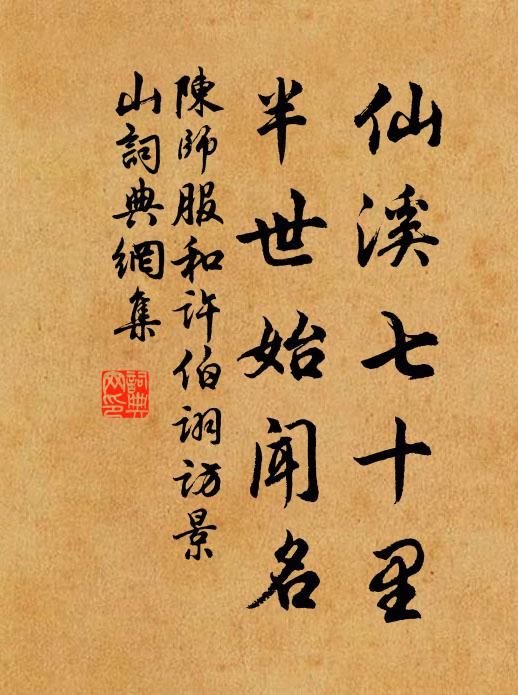 仙溪七十里
半世始闻名
陳師服和許伯詡訪景
山詞典網集
詞典
网印